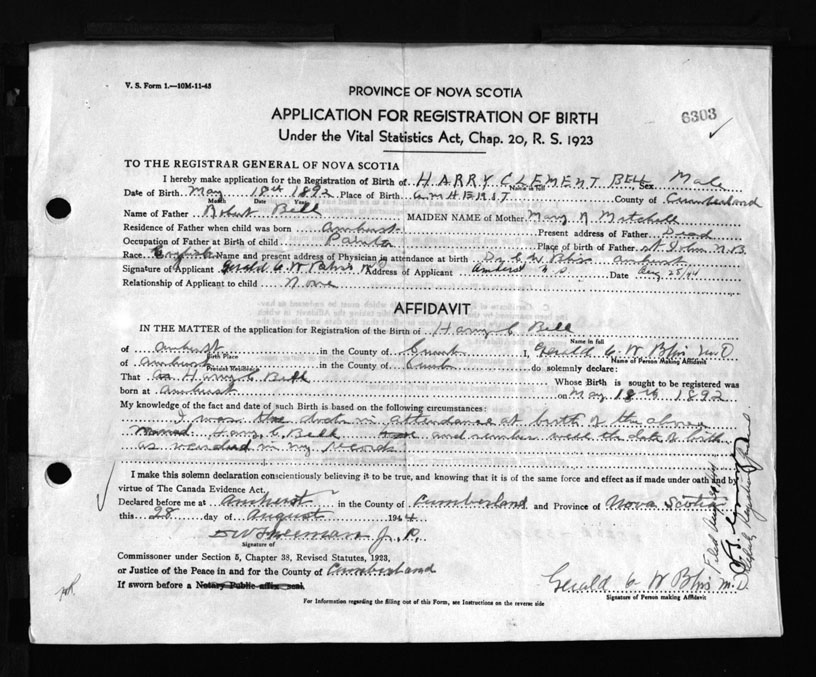 V. S. Form 1.—10M-11-43
PROVINCE OF NOVA SCOTIA
APPLICATION FOR REGISTRATION OF BIRTH
6303
Under the Vital Statistics Act, Chap. 20, R. S. 1923
TO THE REGISTRAR GENERAL OF NOVA SCOTIA
I hereby make application for the Registration of Birth of HARRY CLEMENT BELL Sex Male
Name in full
Date of Birth May 18th 1892 Place of Birth AMHERST County of Cumberland
Month Date Year
Name of Father Robert Bell MAIDEN NAME of Mother Mary Mitchell
Residence of Father when child was born Amherst Present address of Father Dead
Occupation of Father at Birth of child Painter Place of birth of Father St John N.B.
Race English Name and present address of Physician in attendance at birth Dr G. W. Bliss Amherst
Signature of Applicant Gerald C W Bliss MD Address of Applicant Amherst N S Date Aug 28/44
Relationship of Applicant to child None
AFFIDAVIT
IN THE MATTER of the application for Registration of the Birth of Harry C Bell
Name in full
of Amherst in the County of Cumb I, Gerald C W Bliss M D
Birth Place Name of Person Making Affidavit
of Amherst in the County of Cumb do solemnly declare:
Present Residence
That Harry C Bell Whose Birth is sought to be registered was
born at Amherst on May 18th 1892
My knowledge of the fact and date of such Birth is based on the following circumstances:
I was the doctor in attendance at birth of the above
named Harry C. Bell and remember well the date of birth
as recorded in my records
I make this solemn declaration conscientiously believing it to be true, and knowing that it is of the same force and effect as if made under oath and by
virtue of The Canada Evidence Act.
Declared before me at Amherst in the County of Cumberland and Province of Nova Scotia
this 28 day of August 1944
Freeman J. P.
Signature of
Commissioner under Section 5, Chapter 38, Revised Statutes, 1923,
or Justice of the Peace in and for the County of Cumberland
If sworn before a Notary Public affix seal.
Gerald C W Bliss M. D.
Signature of Person making Affidavit
For Information regarding the filling out of this Form, see Instructions on the reverse side